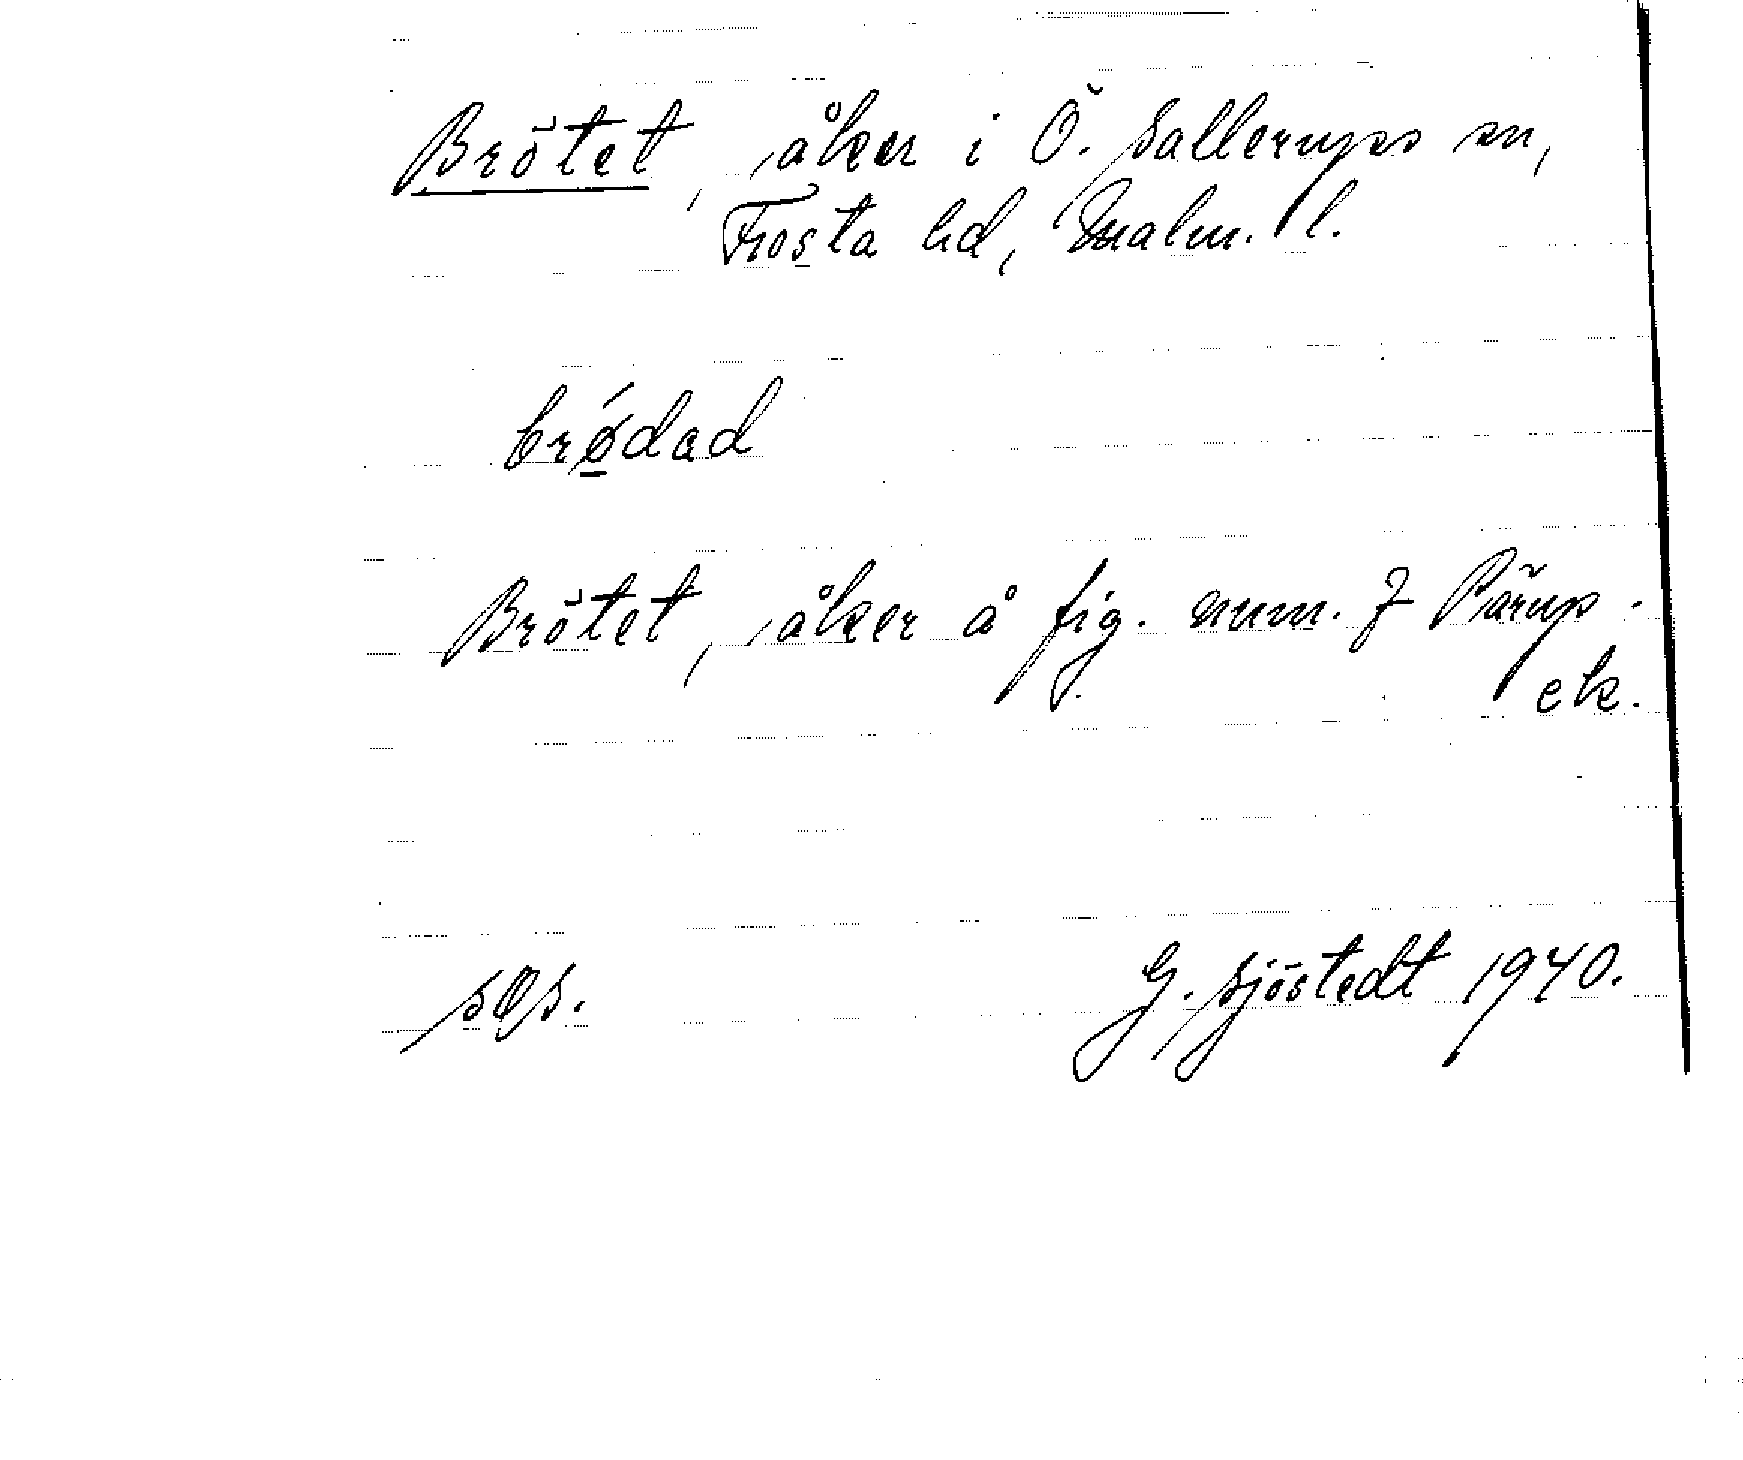 Brötet, åker i Ö. Sallerups sn,
Frosta hd, Malm. l.
brǿdad
Brötet, åker å fig. num. 7 Pärup.
ek.
G. Sjöstedt 1940.